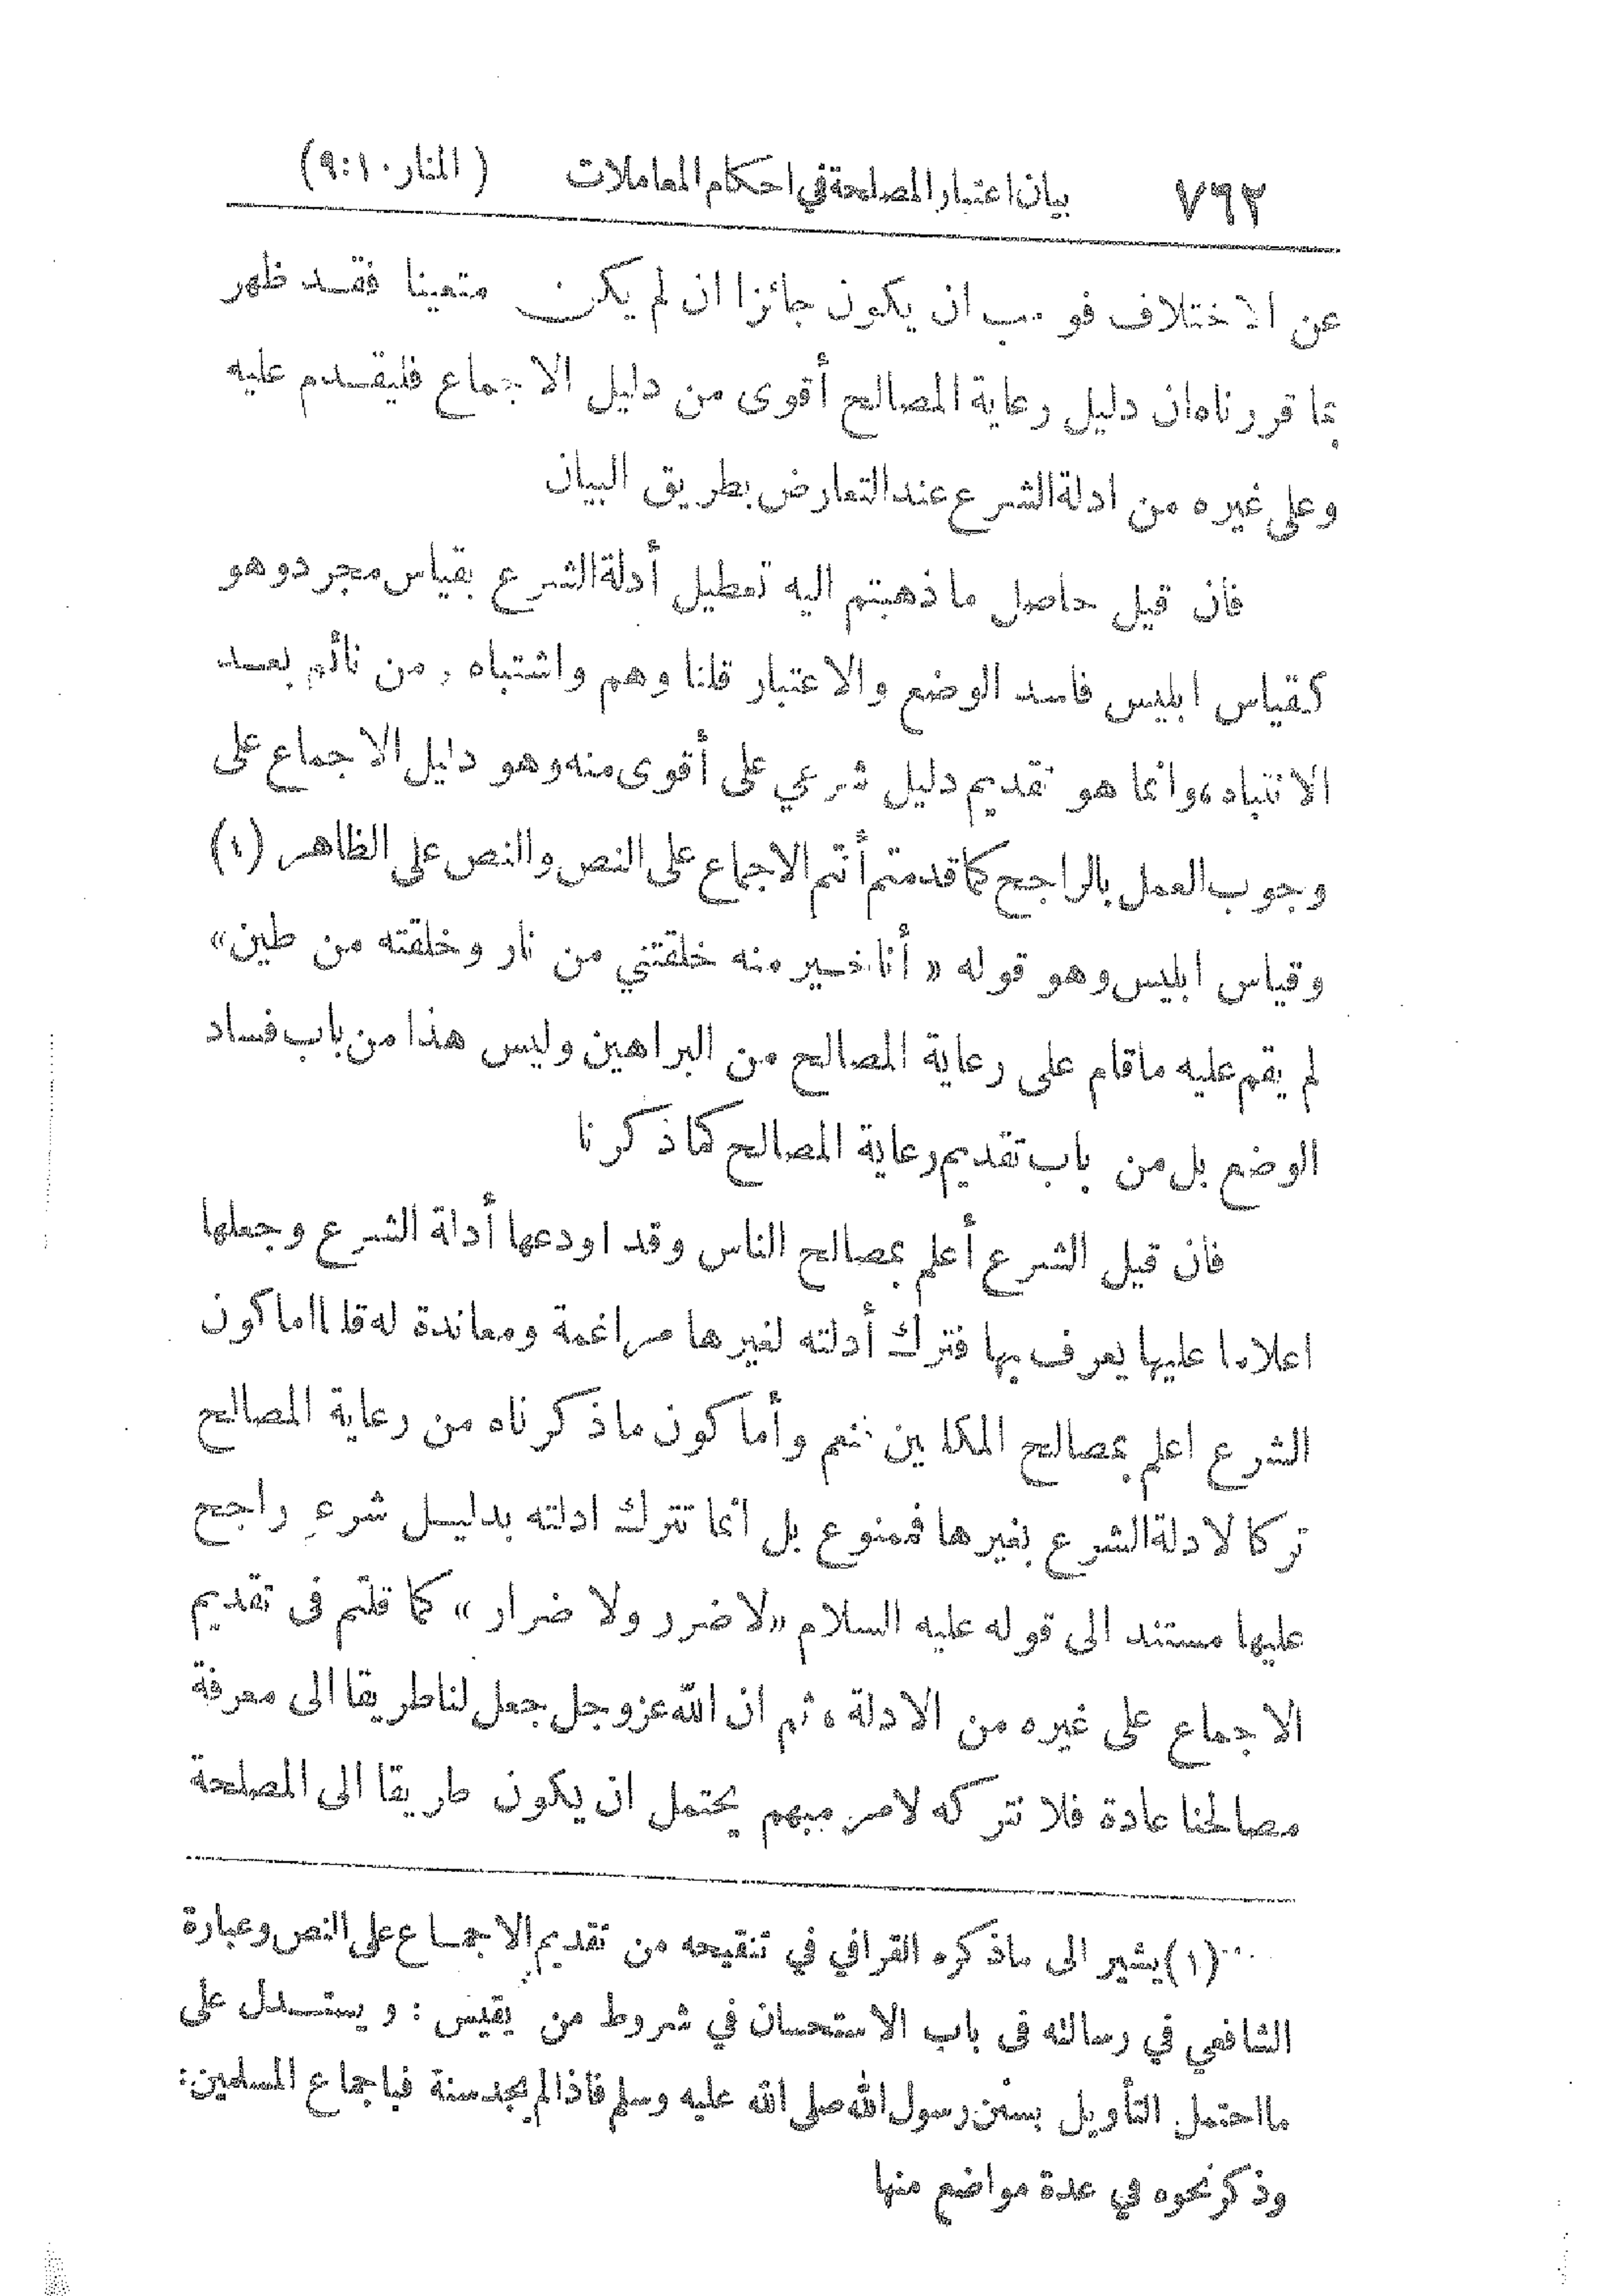 ٧٦٢ بيان اعتبار المصلحة في احكام المعاملات (المنار ١٠:٩)
عن الاختلاف فوجب ان يكون جائزا ان لم يكن متعينا فقد ظهر
بما قررناه ان دليل رعاية المصالح أقوى من دليل الاجماع فليقدم عليه
وعلى غيره من ادلة الشرع عند التعارض بطريق البيان
فان قيل حاصل ما ذهبتم اليه تعطيل أدلة الشرع بقياس مجرد وهو
كقياس ابليس فاسد الوضع والاعتبار قلنا وهم واشتباه، من نائم بعد
الانتباه، وانما هو تقديم دليل شرعي على أقوى منه وهو دليل الاجماع على
وجوب العمل بالراجح كما قدمتم أنتم الاجماع على النص والنص على الظاهر (١)
وقياس ابليس وهو قوله « أنا خير منه خلقتني من نار وخلقته من طين»
لم يقم عليه ما قام على رعاية المصالح من البراهين وليس هذا من باب فساد
الوضع بل من باب تقديم رعاية المصالح كما ذكرنا
فان قيل الشرع أعلم بمصالح الناس وقد اودعها أدلة الشرع وجعلها
اعلاما عليها يعرف بها فترك أدلته لغيرها مراغمة ومعاندة له قلنا اما كون
الشرع اعلم بمصالح المكلفين فنعم وأما كون ما ذكرناه من رعاية المصالح
تركا لادلة الشرع بغيرها فممنوع بل انما تترك ادلته بدليل شرعي راجح
عليها مستند الى قوله عليه السلام «لا ضرر ولا ضرار» كما قلتم فى تقديم
الاجماع على غيره من الادلة، ثم ان الله عز وجل جعل لنا طريقا الى معرفة
مصالحنا عادة فلا نتركه لامر مبهم يحتمل ان يكون طريقا الى المصلحة
(١) يشير الى ما ذكره القرافي في تنقيحه من تقديم الاجماع على النص وعبارة
الشافعي في رسالته فى باب الاستحسان في شروط من يقيس : ويستدل على
ما احتمل التأويل بسنن رسول الله صلى الله عليه وسلم فاذا لم يجد سنة فباجماع المسلمين:
وذكر نحوه في عدة مواضع منها